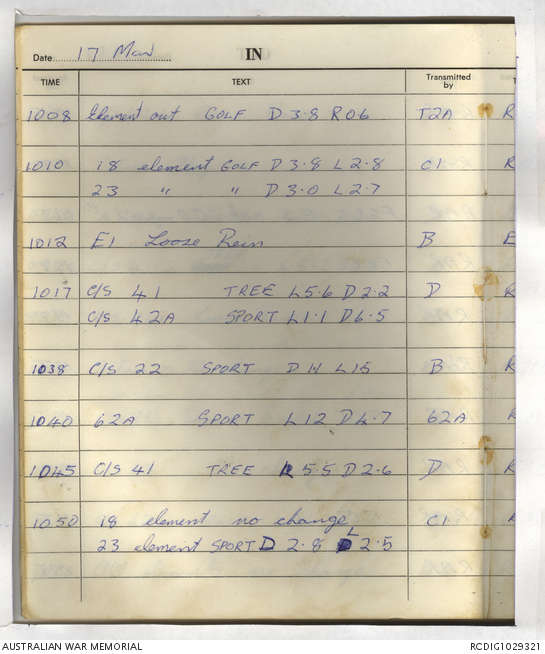 Date 17 Mar IN
TIME TEXT Transmitted by T
1008 Element out GOLF D 3.8 R 0.6 T2A R
1010 18 element GOLF D 3.8 L 2.8 C1 R
23 " " D 3.0 L 2.7
1012 E1 Loose Rein B E
1017 C/S 41 TREE L 5.6 D 2.2 D R
C/S 42A SPORT L 1.1 D 6.5
1038 C/S 22 SPORT D 14 L 15 B R
1040 62A SPORT L 12 D 4.7 62A R
1045 C/S 41 TREE R 5.5 D 2.6 D R
1050 18 element no change C1 R
23 element SPORT D 2.8 L 2.5
AUSTRALIAN WAR MEMORIAL RCDIG1029321